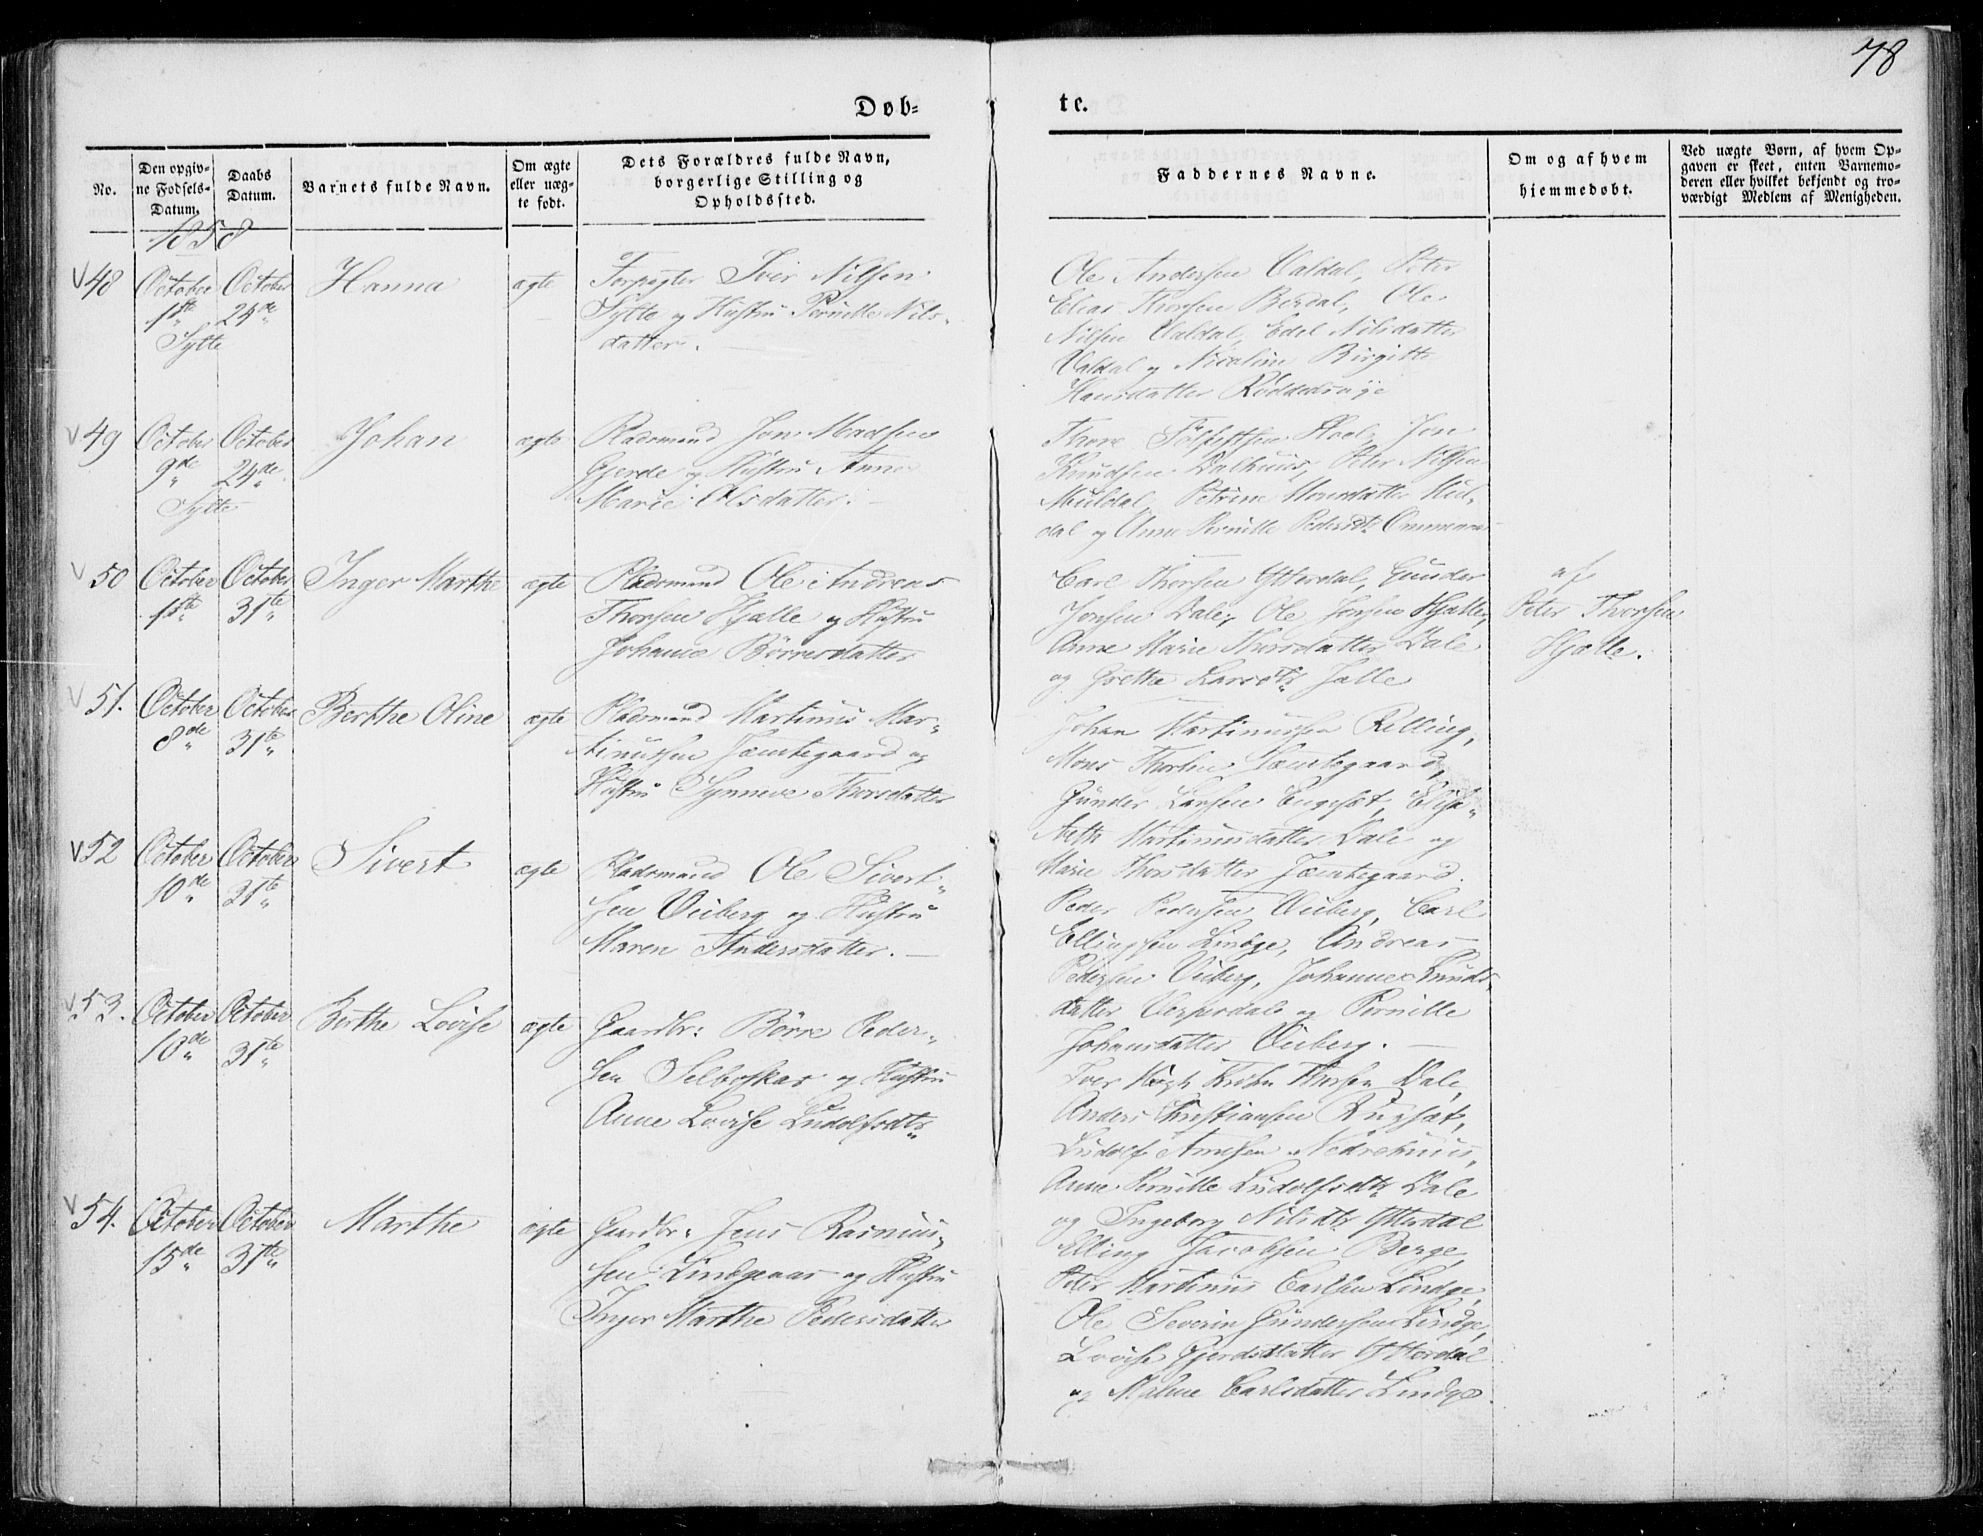 78
Døb-
te.
No.
Den opgiv-
ne Fødsels-
Datum.
Daabs
Datum.
Barnets fulde Navn.
Om ægte
eller uæg-
te født.
Dets Forældres fulde Navn,
borgerlige Stilling og
Opholdssted.
Faddernes Navne.
Om og af hvem
hjemmedøbt.
Ved uægte Børn, af hvem Op-
gaven er skeet, enten Barnemo-
deren eller hvilket bekjendt og tro-
værdigt Medlem af Menigheden.
1858
V 48
October
1ste
Sylte
October
24de
Hanna
ægte
Forpagter Iver Nilsen
Sylte og Hustru Pernille Nils-
datter.
Ole Andersen Valdal, Peter
Elias Thorsen Berdal, Ole
Nilsen Valdal, Edel Nilsdatter
Valdal og Nicoline Birgitte
Hansdatter
V 49
October
9de
Sylte
October
24de
Johan
ægte
Pladsmand Jon Madsen
Gjerde og Hustru Anne
Marie Olsdatter.
Thore
Jon
Knudsen Dalhuus, Peter Nilsen
Muldal, Petrine Monsdatter Mul-
dal og Anne Pernille Pedersdtr
V 50
October
1ste
October
31te
Inger Marthe
ægte
Pladsmand Ole Andreas
Thorsen Hjelle og Hustru
Johanne Börresdatter
Carl Thorsen Ytterdal, Gunder
Jonsen Dale, Ole Jensen Hjelle,
Anne Marie Thorsdatter Dale
og Grethe Larsdtr Jelle
af
Peter Thorsen
Hjelle.
V 51.
October
8de
October
31te
Berthe Oline
ægte
Pladsmand Martinus Mar-
tinussen Jemtegaard og
Hustru Synneve Thorsdatter
Johan Martinussen Relling,
Mons Thorsen Jemtegaard,
Gunder Larsen Engeset, Elisa-
beth Martinusdatter Dale og
Marie Thorsdatter Jemtegaard.
V 52
October
10de
October
31te
Sivert
ægte
Pladsmand Ole Sivert-
sen Uuberg og Hustru
Maren Andersdatter.
Peder Pedersen Uuberg, Carl
Ellingsen Lindge, Andreas
Pedersen Uuberg, Johanne Knuds-
datter
og Pernille
Johansdatter Uuberg.
V 53.
October
10de
October
31te
Berthe Lovise
ægte
Gaardbr: Börre Peder-
sen Selboskar og Hustru
Anne Lovise Ludolfsdtr
Iver Høgh Krohn Thorsen Dale,
Anders Christiansen
Ludolf Arnesen Nedrehuus,
Anne Pernille Ludolfsdtr Dale
og Ingeborg Nilsdtr Ytterdal
V 54.
October
15de
October
31te
Marthe
ægte
Gaardbr: Jens Rasmus-
sen Lindgeaas og Hustru
Inger Marthe Pedersdatter
Elling Jacobsen Berge,
Peter Martinus Carlsen Lindge,
Ole Severin Gundersen Lindge,
Lovise Gjerdsdatter Ytterdal
og Malene Carlsdatter Lindge.